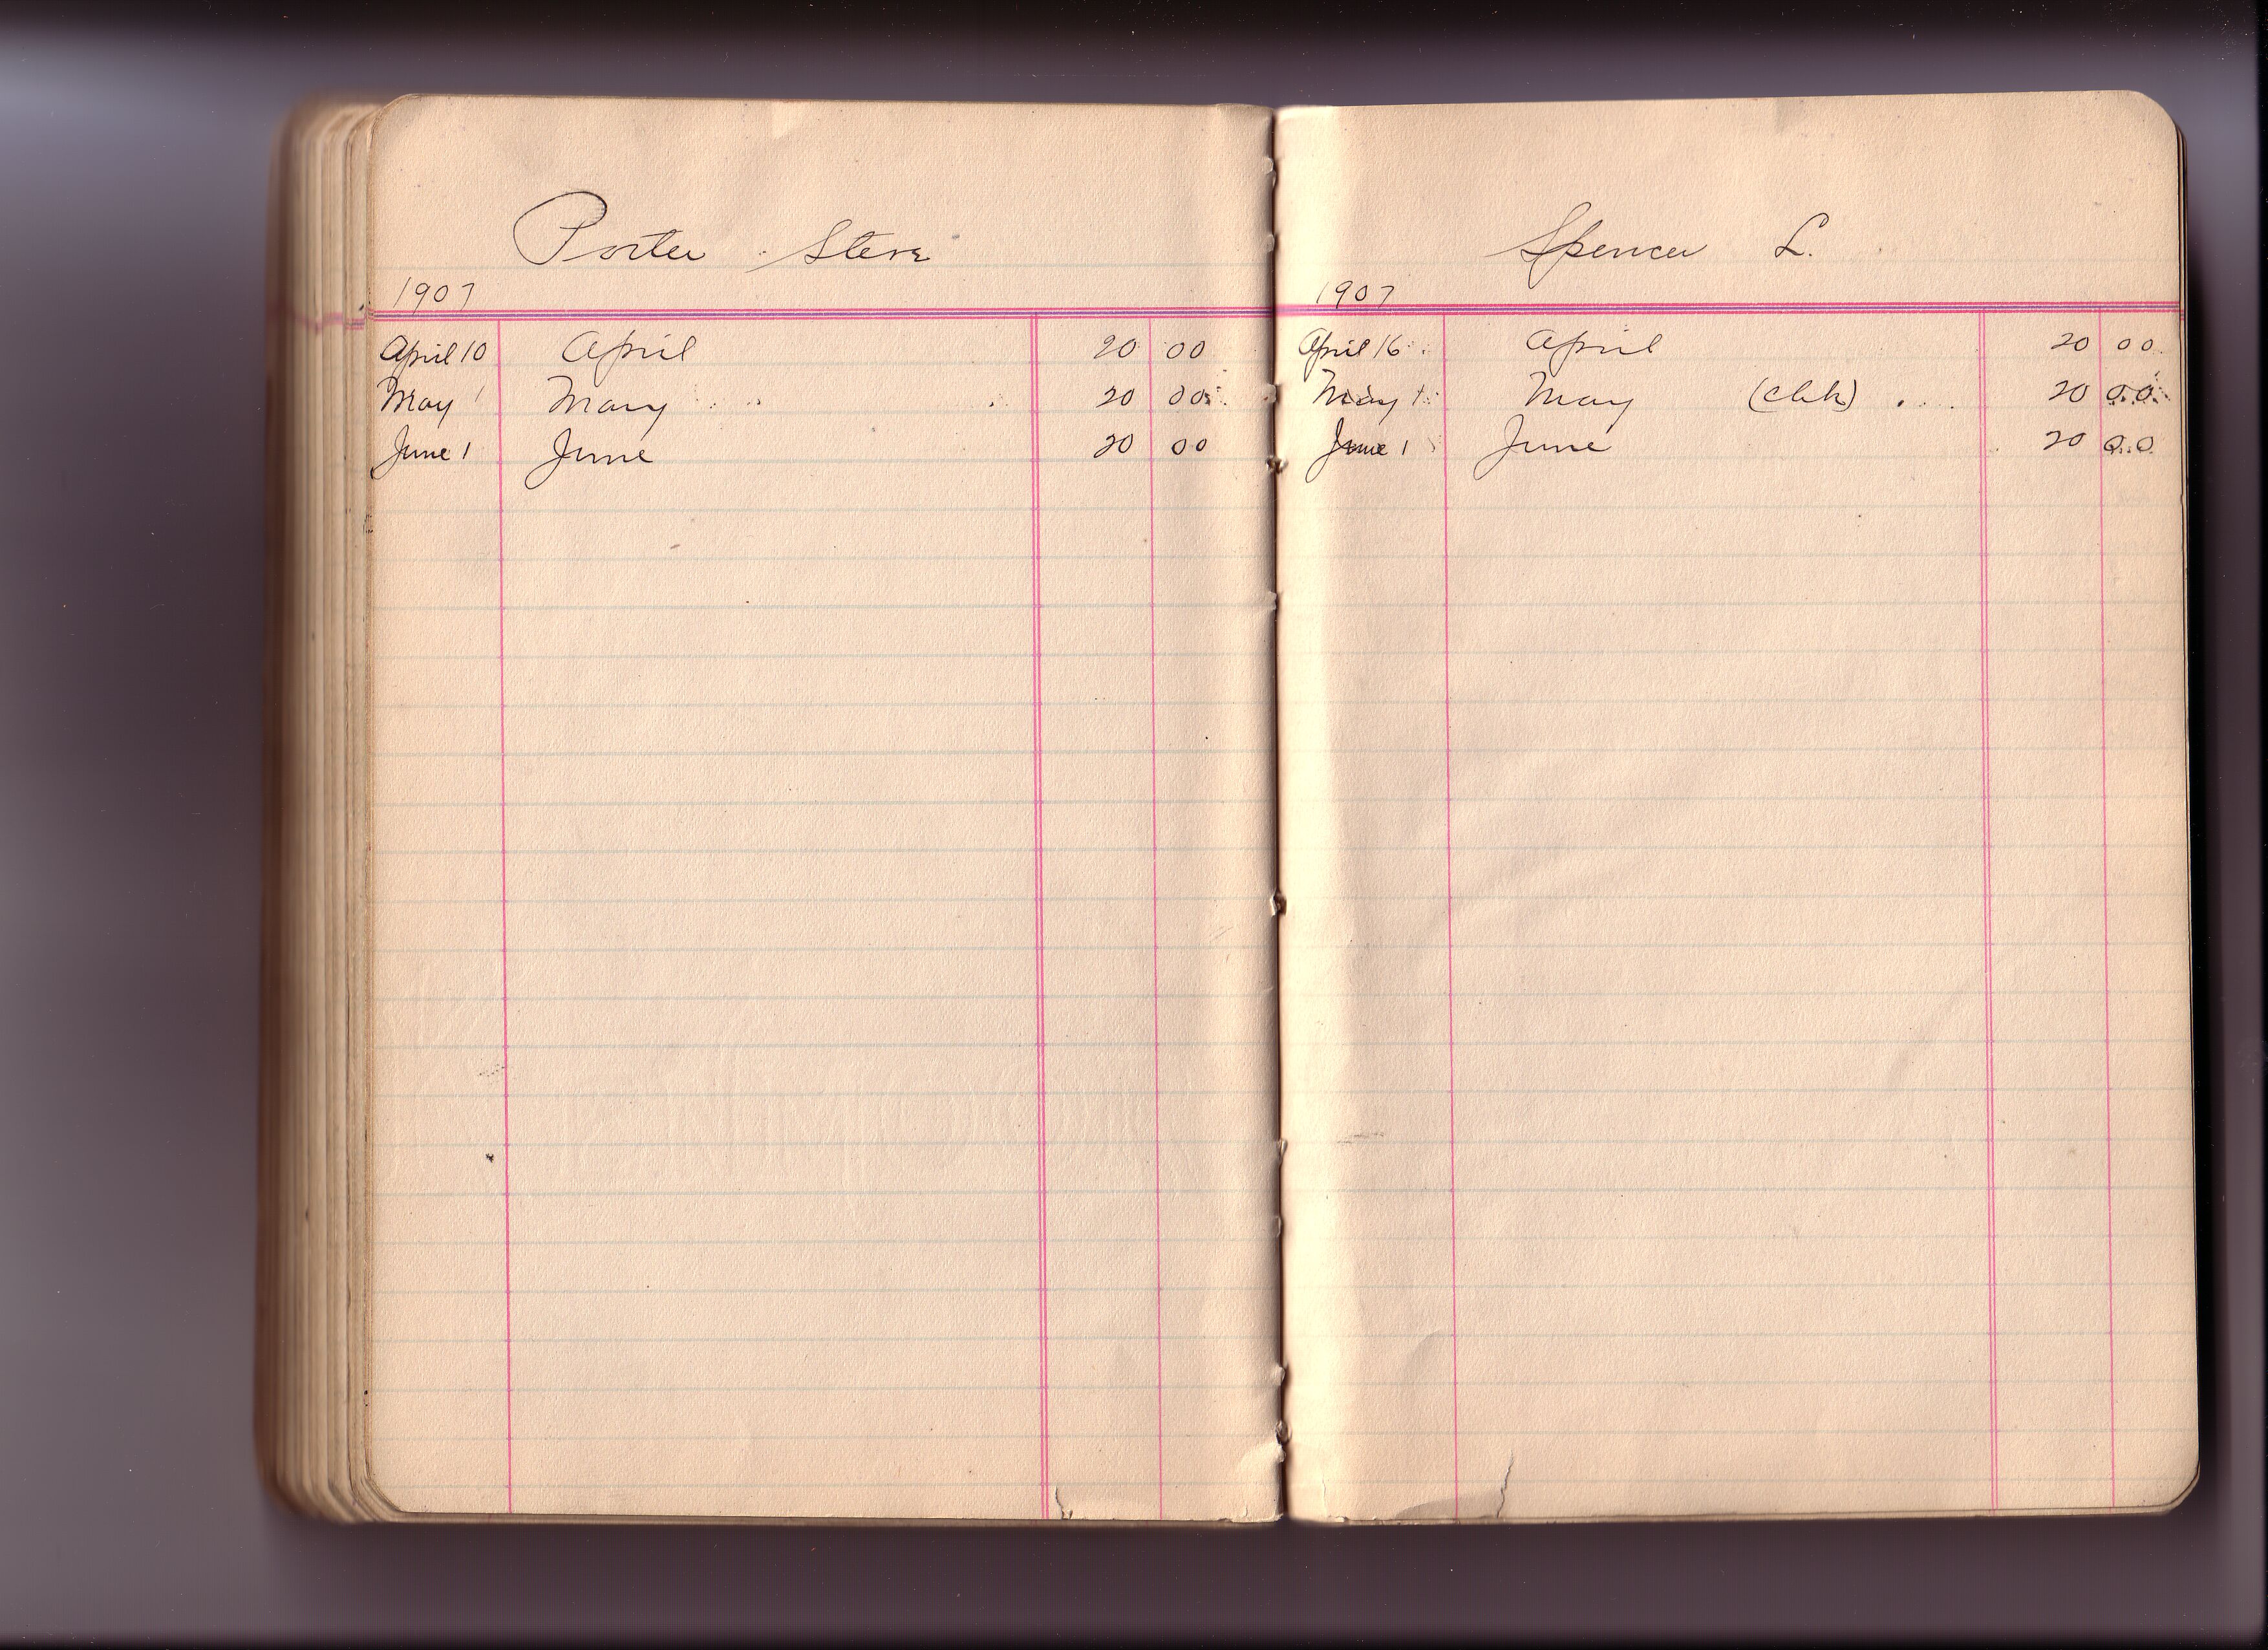 Porter Steve
1907
April 10 April 20 00
May 1 Mary 20 00
June 1 June 20 00
Spencer L.
1907
April 16 April 20 00
May 1 May (chk) 20 00
June 1 June 20 00